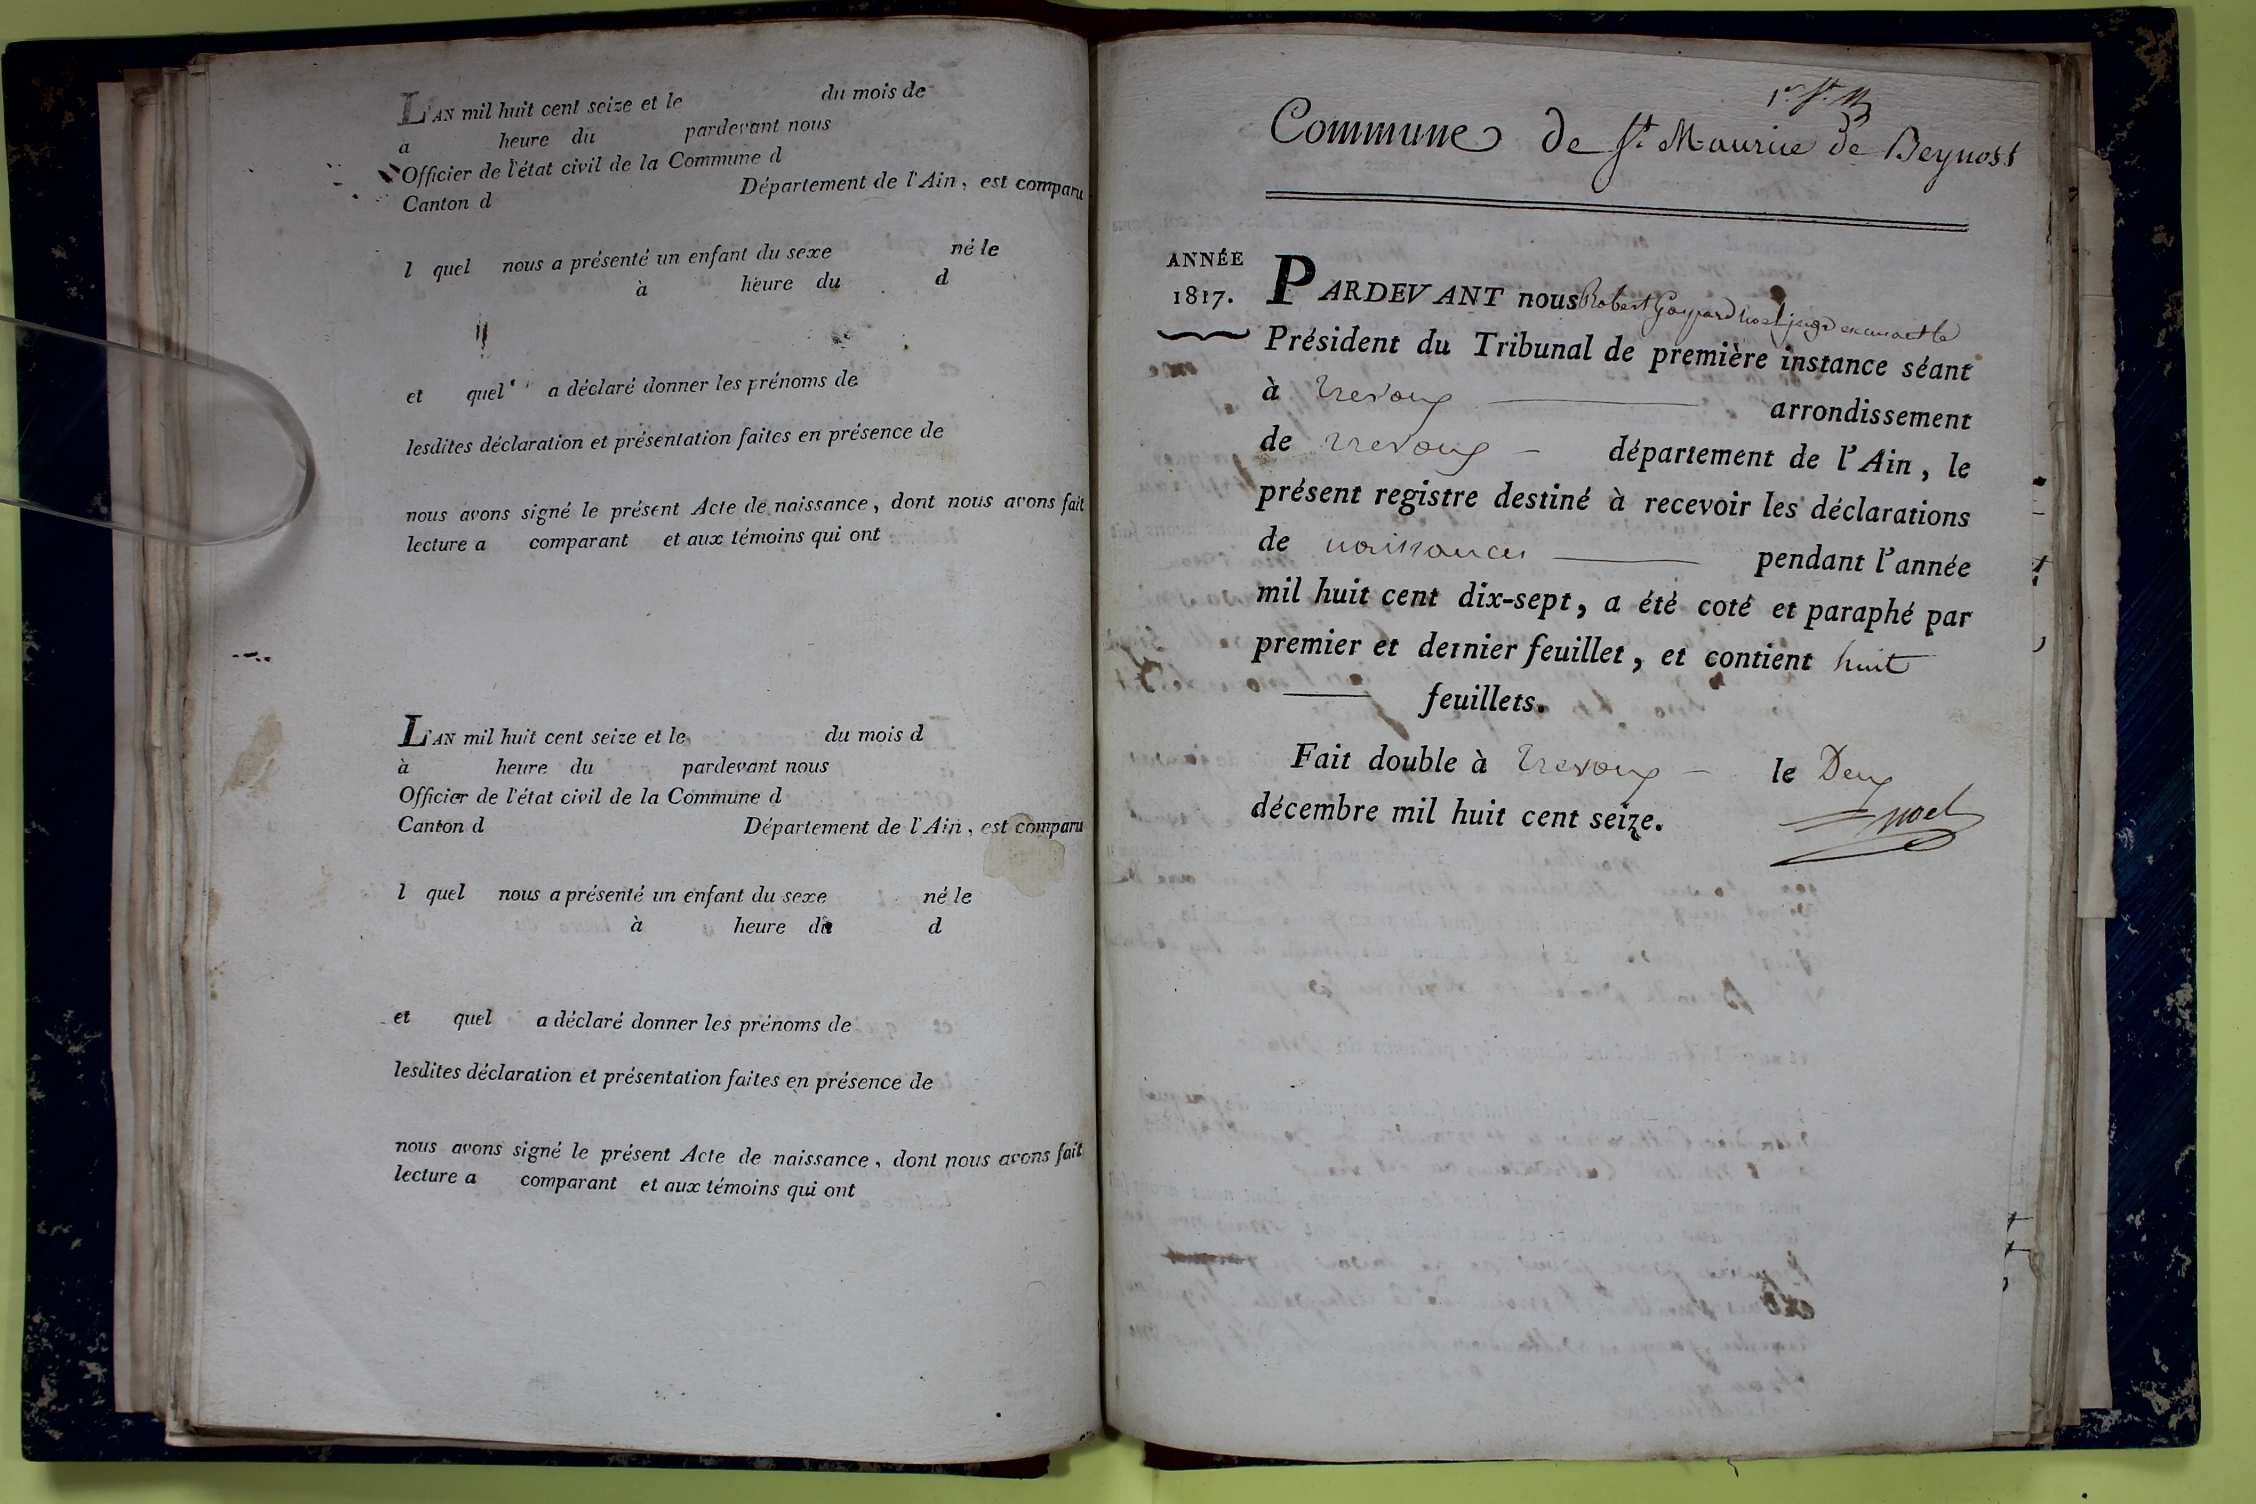 L'AN mil huit cent seize et le du mois de
a heure du pardevant nous
Officier de l'état civil de la Commune d
Canton d Département de l'Ain, est comparu
l quel nous a présenté un enfant du sexe né le
à heure du d
et quel a déclaré donner les prénoms de
lesdites déclaration et présentation faites en présence de
nous avons signé le présent Acte de naissance, dont nous avons fait
lecture a comparant et aux témoins qui ont
L'AN mil huit cent seize et le du mois d
à heure du pardevant nous
Officier de l'état civil de la Commune d
Canton d Département de l'Ain, est comparu
l quel nous a présenté un enfant du sexe né le
à heure du d
et quel a déclaré donner les prénoms de
lesdites déclaration et présentation faites en présence de
nous avons signé le présent Acte de naissance, dont nous avons fait
lecture a comparant et aux témoins qui ont
Commune de St Maurice de Beynost
ANNÉE
1817.
PARDEVANT nous Robert Gaspard noel juge
Président du Tribunal de première instance séant
à Trevoux arrondissement
de Trevoux département de l'Ain, le
présent registre destiné à recevoir les déclarations
de naissances pendant l'année
mil huit cent dix-sept, a été coté et paraphé par
premier et dernier feuillet, et contient huit
feuillets.
Fait double à Trevoux le Deux
décembre mil huit cent seize.
noel